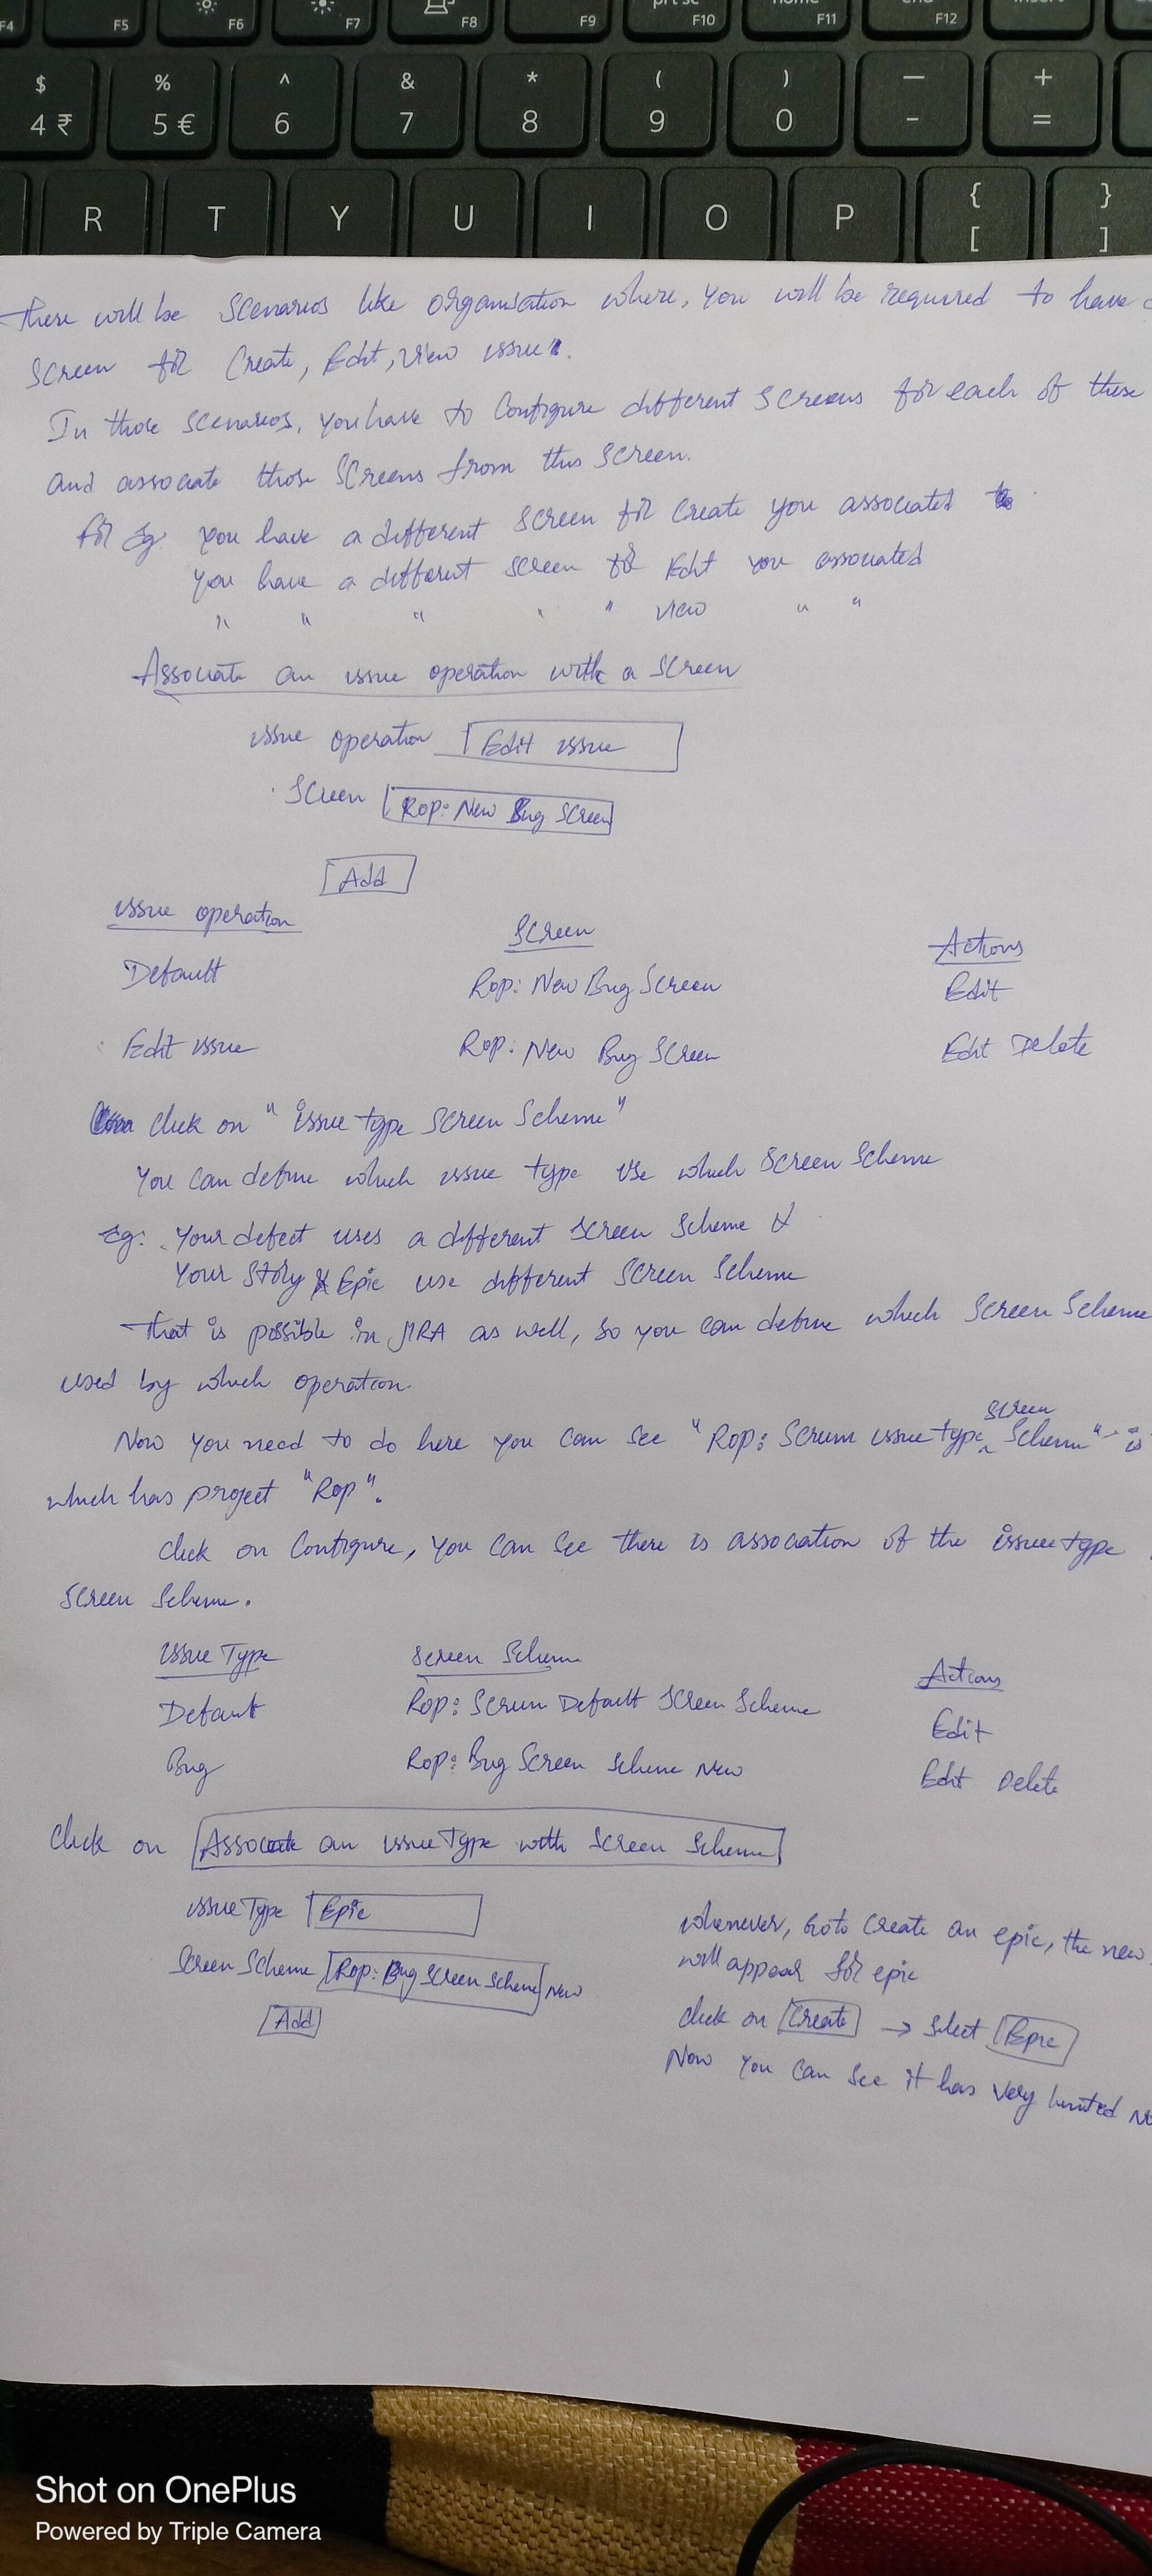 F4 F5 F6 F7 F8 F9 prt sc F10 home F11 end F12 insert
$ 4 ₹ % 5 € ^ 6 & 7 * 8 ( 9 ) 0 — - + =
R T Y U I O P { [ } ]
There will be Scenarios like organisation where, you will be required to have
Screen for Create, Edit, view issue.
In those scenarios, you have to Configure different screens for each of these
and associate those Screens from this Screen.
for Eg: you have a different screen for Create you associated
you have a different screen for Edit you associated
" " " " " view " "
Associate an issue operation with a Screen
issue operation Edit issue
Screen Rop: New Bug Screen
Add
issue operation Screen Actions
Default Rop: New Bug Screen Edit
Edit issue Rop: New Bug Screen Edit Delete
click on "issue type Screen Scheme"
You can define which issue type use which Screen Scheme
Eg: Your defect uses a different Screen Scheme &
Your Story & Epic use different Screen Scheme
That is possible in JIRA as well, so you can define which Screen Scheme
used by which operation.
Now you need to do here you can see "Rop: Scrum issue type Screen Scheme" is
which has project "Rop".
click on Configure, you can see there is association of the issue type
Screen Scheme.
Issue Type Screen Scheme Actions
Default Rop: Scrum Default Screen Scheme Edit
Bug Rop: Bug Screen Scheme New Edit Delete
Click on Associate an issue Type with Screen Scheme
issue Type Epic
Screen Scheme Rop: Bug Screen Scheme New
Add
whenever, goto Create an epic, the new
will appear for epic
click on Create → Select Epic
Now you can see it has very limited
Shot on OnePlus
Powered by Triple Camera